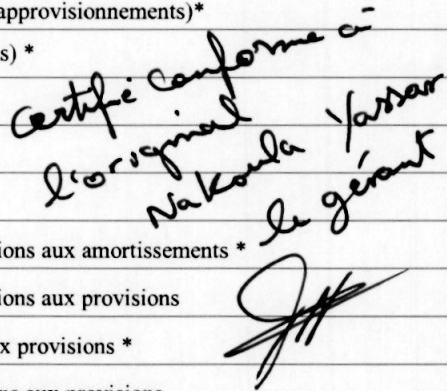 approvisionnements)*
s) *
Certifié conforme à
l'original
Nakoula Yassar
le gérant
ions aux amortissements *
ions aux provisions
x provisions *
ns aux provisions